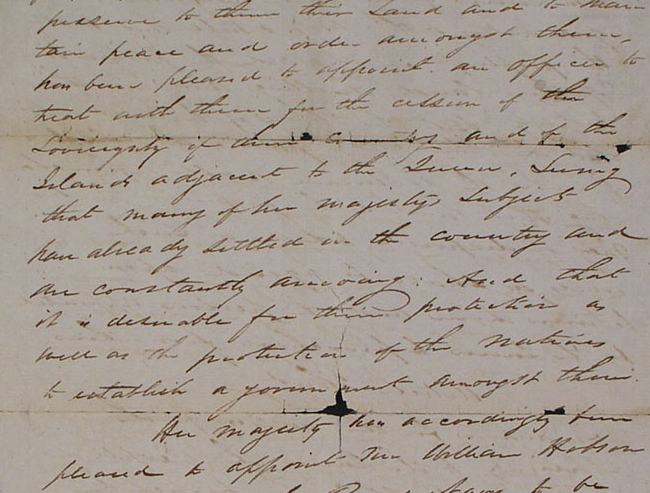 preserve to them their Land and to main
tain peace and order amongst them,
has been pleased to appoint an officer to
treat with them for the cession of the
Sovereignty of their country and of the
Islands adjacent to the Queen. Seeing
that many of her majesty's subjects
have already settled in the country and
are constantly arriving: And that
it is desirable for their protection as
well as the protection of the natives
to establish a government amongst them.
Her majesty has accordingly been
pleased to appoint me William Hobson
to be